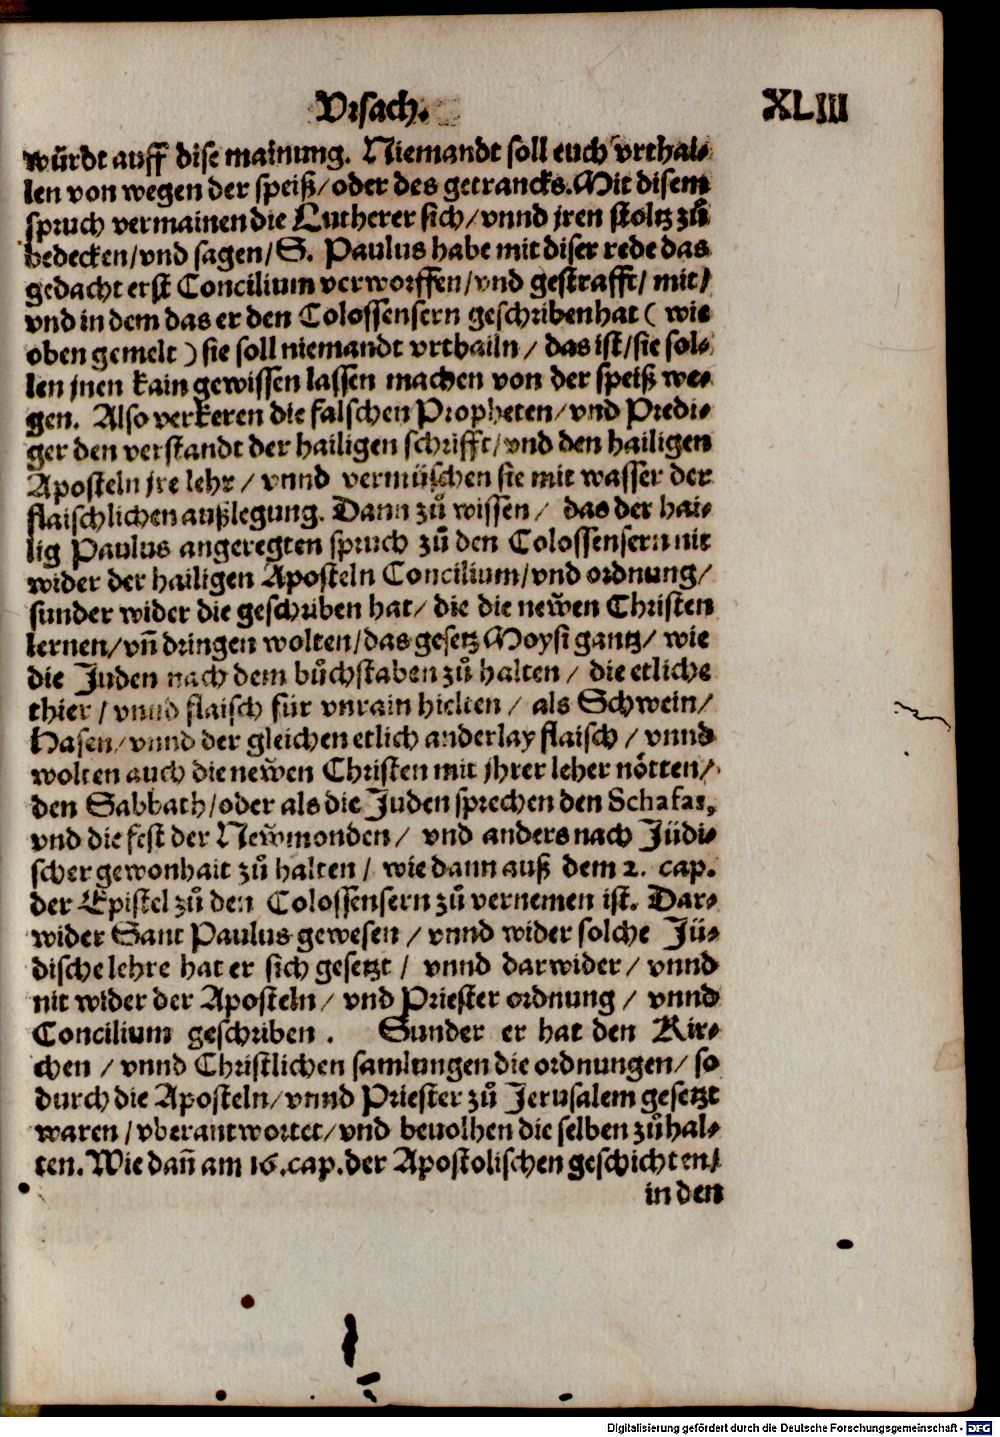 Vrsach. XLIII
wůrdt auff dise mainung. Niemandt soll euch vrthai-
len von wegen der speiß/oder des getrancks. Mit disem
spruch vermainen die Lutherer sich/vnnd jren stoltz zů
bedecken/vnd sagen/S. Paulus habe mit diser rede das
gedacht erst Concilium verworffen/vnd gestrafft/ mit/
vnd in dem das er den Colossensern geschriben hat ( wie
oben gemelt ) sie soll niemandt vrthailn / das ist/sie sol-
len jnen kain gewissen lassen machen von der speiß we-
gen. Also verkeren die falschen Propheten/vnd Predi-
ger den verstandt der hailigen schrifft/vnd den hailigen
Aposteln jre lehr / vnnd vermüschen sie mit wasser der
flaischlichen außlegung. Dann zů wissen / das der hai-
lig Paulus angeregten spruch zů den Colossensern nit
wider der hailigen Aposteln Concilium/vnd ordnung/
sunder wider die geschriben hat/ die die newen Christen
lernen/vñ dringen wolten/das gesetz Moysi gantz/ wie
die Juden nach dem bůchstaben zů halten / die etliche
thier / vnnd flaisch für vnrain hielten / als Schwein/
Hasen/vnnd der gleichen etlich anderlay flaisch / vnnd
wolten auch die newen Christen mit jhrer leher nötten/
den Sabbath/oder als die Juden sprechen den Schafas,
vnd die fest der Newmonden/ vnd anders nach Jüdi-
scher gewonhait zů halten / wie dann auß dem 2. cap.
der Epistel zů den Colossensern zů vernemen ist. Dar-
wider Sant Paulus gewesen / vnnd wider solche Jü-
dische lehre hat er sich gesetzt / vnnd darwider / vnnd
nit wider der Aposteln/ vnd Priester ordnung / vnnd
Concilium geschriben . Sunder er hat den Kir-
chen / vnnd Christlichen samlungen die ordnungen/ so
durch die Aposteln/vnnd Priester zů Jerusalem gesetzt
waren / vberantwortet/vnd beuolhen die selben zů hal-
ten. Wie dañ am 16. cap. der Apostolischen geschichten/
in den
Digitalisierung gefördert durch die Deutsche Forschungsgemeinschaft - DFG